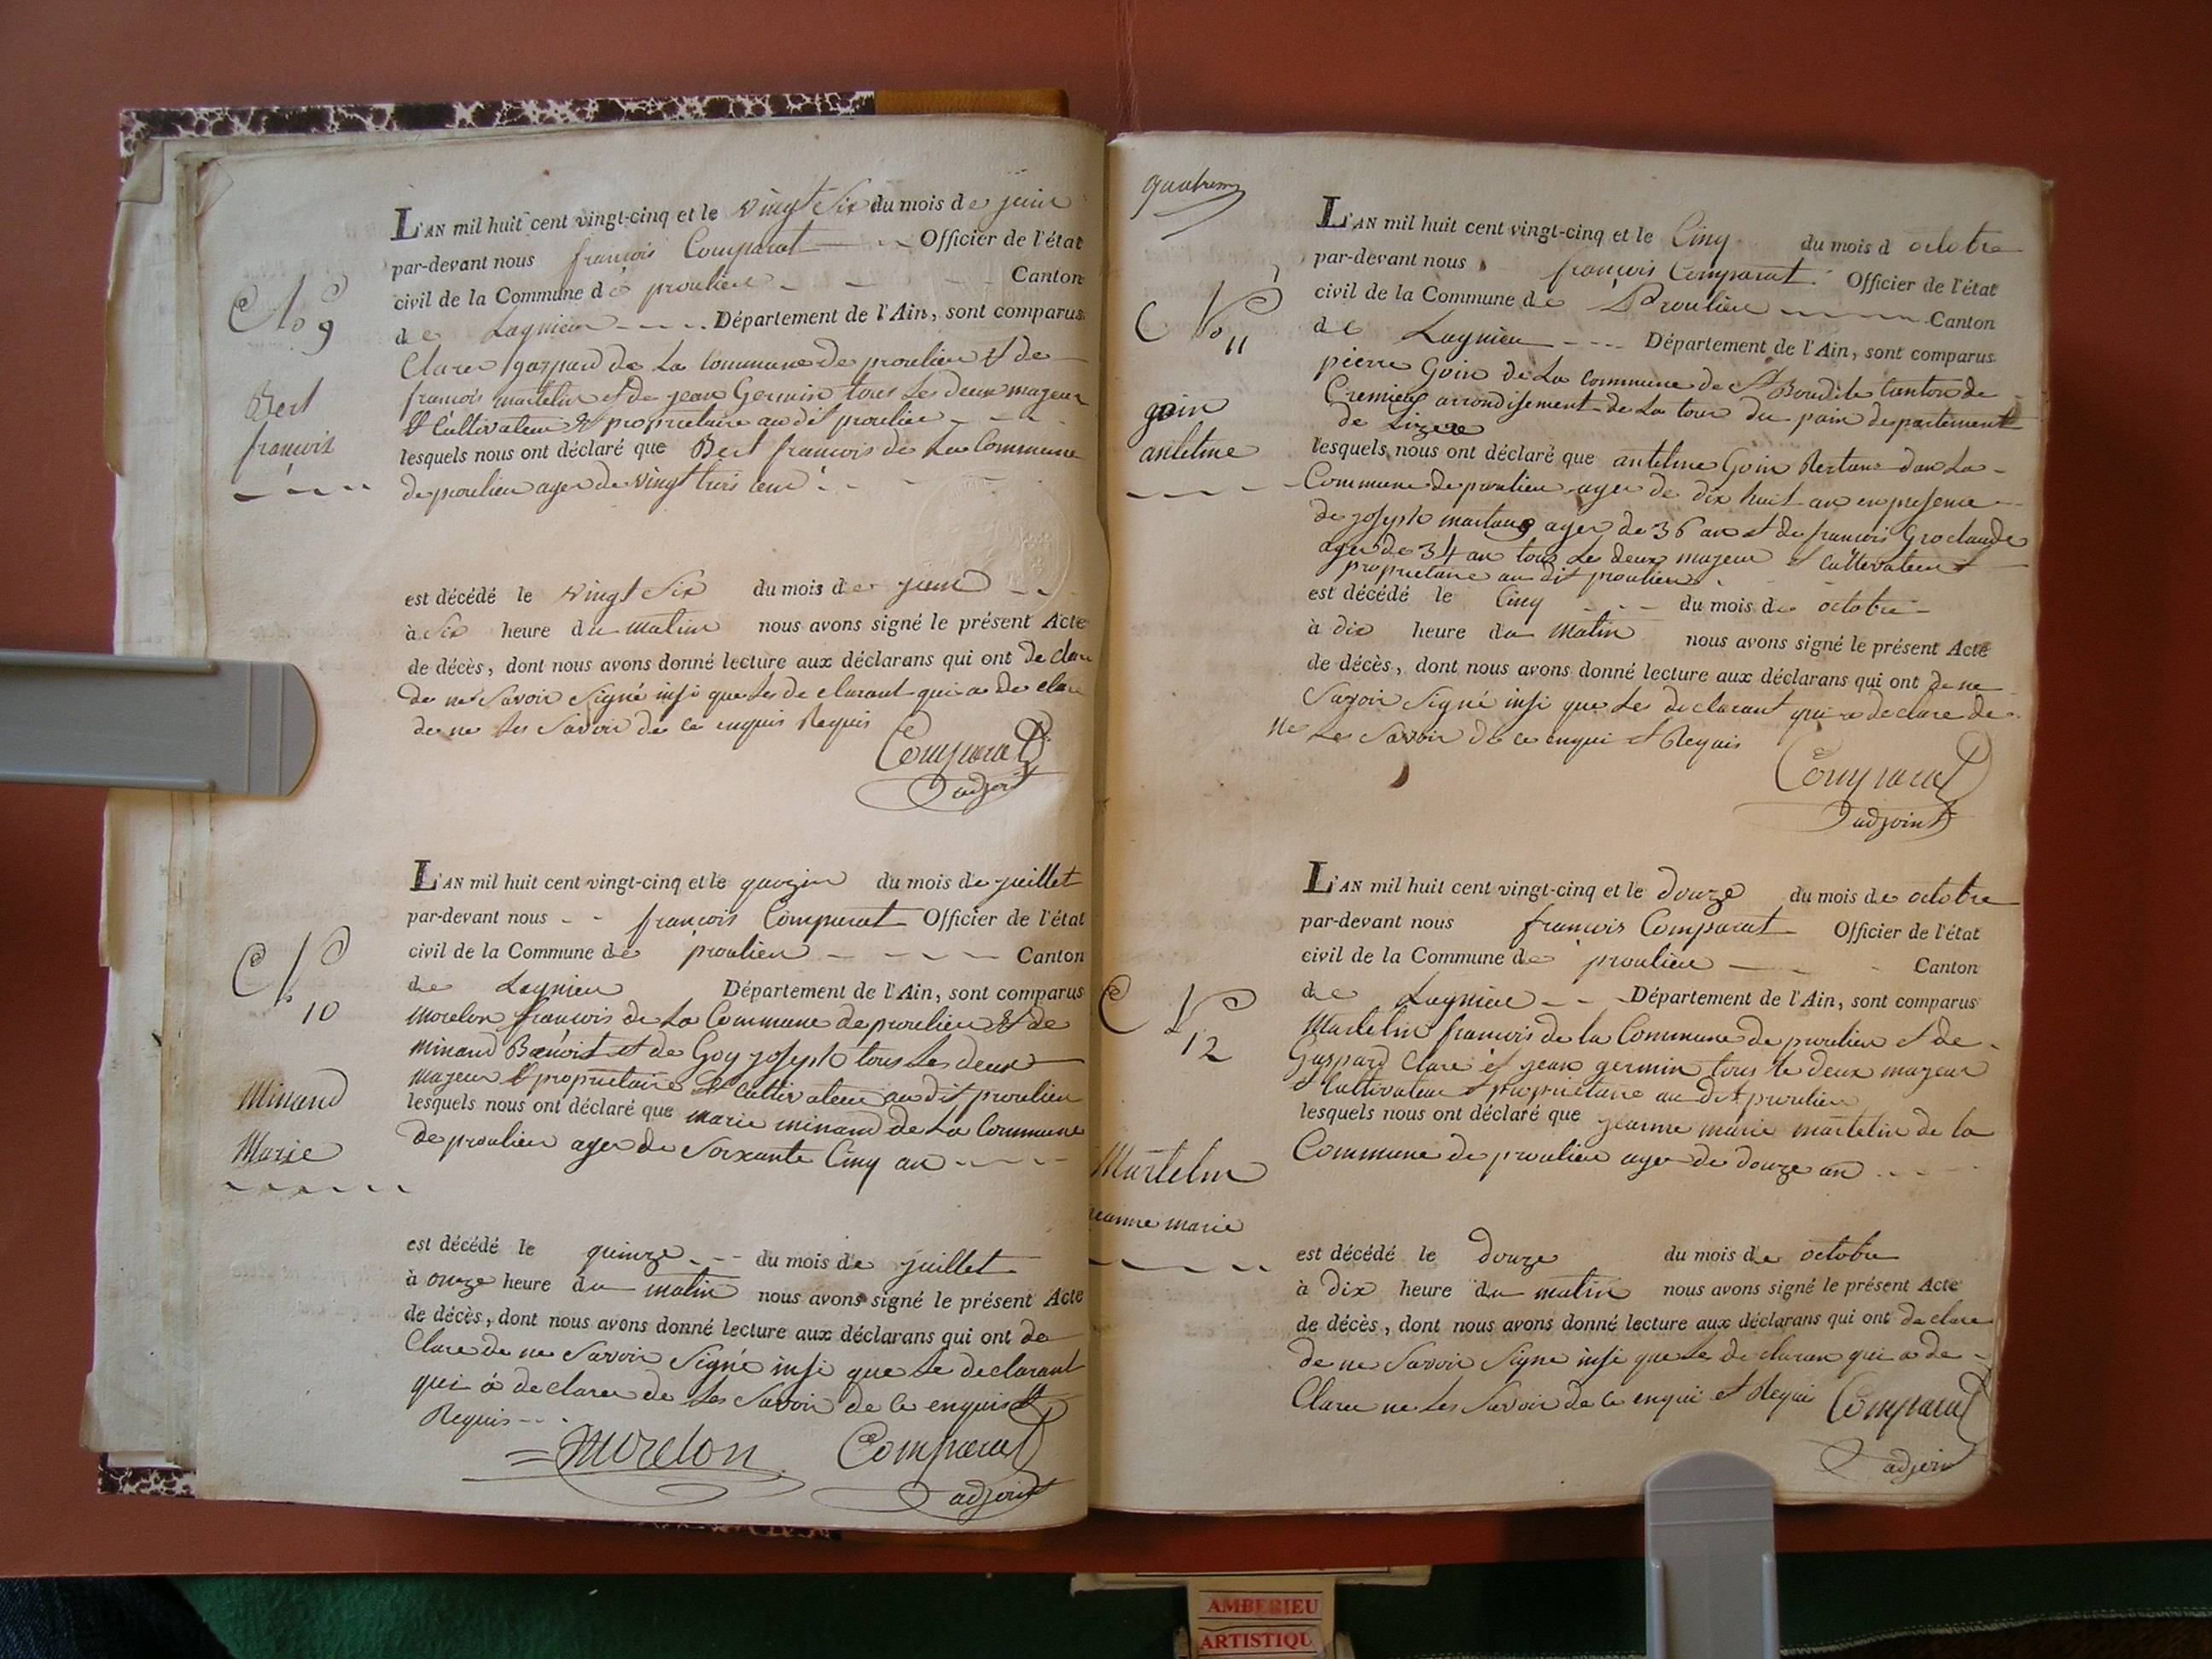 L'AN mil huit cent vingt-cinq et le vingt Six du mois de juin
par-devant nous francois Comparat Officier de l'état
civil de la Commune de proulieu Canton
de Lagnieu Département de l'Ain, sont comparus
Clarer gaspard de La Commune de proulieu et de
francois martelin et de jean Germin tous Les deux majeur
et Cultivateur et proprietaire au dit proulieu
lesquels nous ont déclaré que Bert francois de La Commune
de proulieu ager de vingt trois
No 9
Bert
francois
est décédé le vingt Six du mois de juin
à Six heure du matin nous avons signé le présent Acte
de décès, dont nous avons donné lecture aux déclarans qui ont de clare
de ne Savoir Signé insi que Les de clarant qui a de clare
de ne Les Savoir de ce enquis Requis
Comparat
adjoint
L'AN mil huit cent vingt-cinq et le du mois de juillet
par-devant nous francois Comparat Officier de l'état
civil de la Commune de proulieu Canton
de Lagnieu Département de l'Ain, sont comparus
morelon francois de La Commune de proulieu et de
minand Benoit et de Goy joseph tous Les deux
majeur et proprietaire et cultivateur au dit proulieu
lesquels nous ont déclaré que marie minand de La Commune
de proulieu ager de Soixante Cinq an
No 10
Minand
Marie
est décédé le quinze du mois de juillet
à onze heure du matin nous avons signé le présent Acte
de décès, dont nous avons donné lecture aux déclarans qui ont de
Clare de ne Savoir Signé insi que Le declarant
qui a declarer de Les Savoir de ce enquis et
Requis
Morelon Comparat
adjoint
L'AN mil huit cent vingt-cinq et le Cinq du mois d octobre
par-devant nous francois Comparat Officier de l'état
civil de la Commune de Proulieu Canton
de Lagnieu Département de l'Ain, sont comparus
pierre Goin de La Commune de St Baudile Canton de
Cremieu arrondisement de La tour du pain departement
de Lizere
lesquels nous ont déclaré que antelme Goin Restans dan La
Commune de proulieu ager de dix huit an en presence
de joseph ager de 36 an et de francois Groclaude
ager de 34 an tous Les deux majeur et Cultivateur et
proprietaire au dit proulieu
No 11
goin
antelme
est décédé le Cinq du mois de octobre
à dix heure du matin nous avons signé le présent Acte
de décès, dont nous avons donné lecture aux déclarans qui ont de ne
Savoir Signé insi que Les declarant qui a declare de
ne Les Savoir de ce enqui et Requis
Comparat
adjoint
L'AN mil huit cent vingt-cinq et le douze du mois de octobre
par-devant nous francois Comparat Officier de l'état
civil de la Commune de proulieu Canton
de Lagnieu Département de l'Ain, sont comparus
Martelin francois de la Commune de proulieu et de
Gaspard Clare et jean germin tous le deux majeur
et Cultivateur et proprietaire au dit proulieu
lesquels nous ont déclaré que jeanne marie martelin de la
Commune de proulieu ager de douze an
No 12
Martelin
jeanne marie
est décédé le douze du mois de octobre
à dix heure du matin nous avons signé le présent Acte
de décès, dont nous avons donné lecture aux déclarans qui ont declare
de ne Savoir Signe insi que Les de claran qui a de
Clarer ne Les Savoir de ce enqui et Requis Comparat
adjoint
AMBERIEU
ARTISTIQU